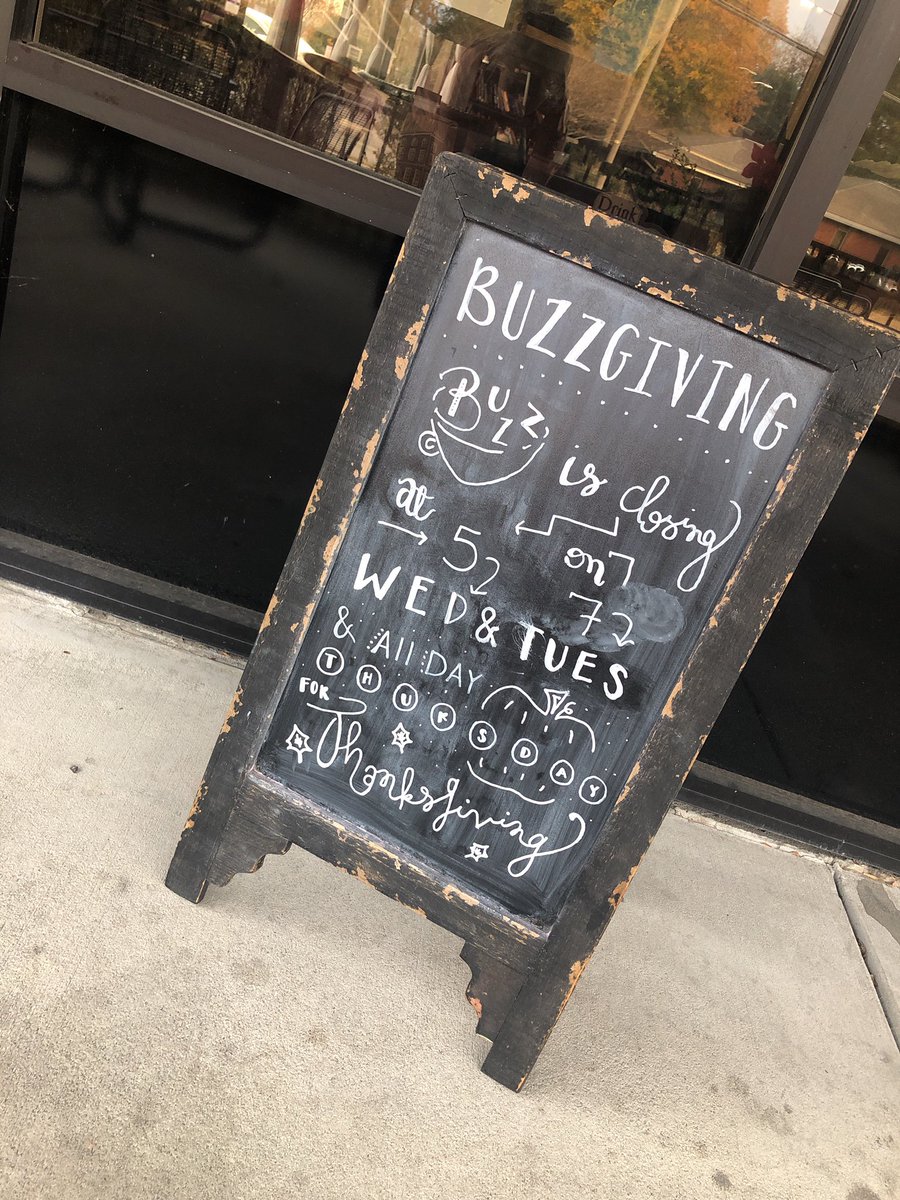 BUZZGIVING
BUZZ
is closing
at 5 on 7
WED & TUES
& All DAY
THURSDAY
FOR
Thanksgiving
Drink